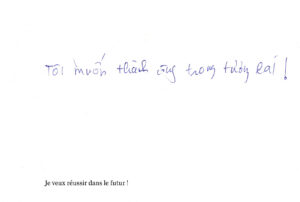 Tôi muốn thành công trong tương lai !
Je veux réussir dans le futur !